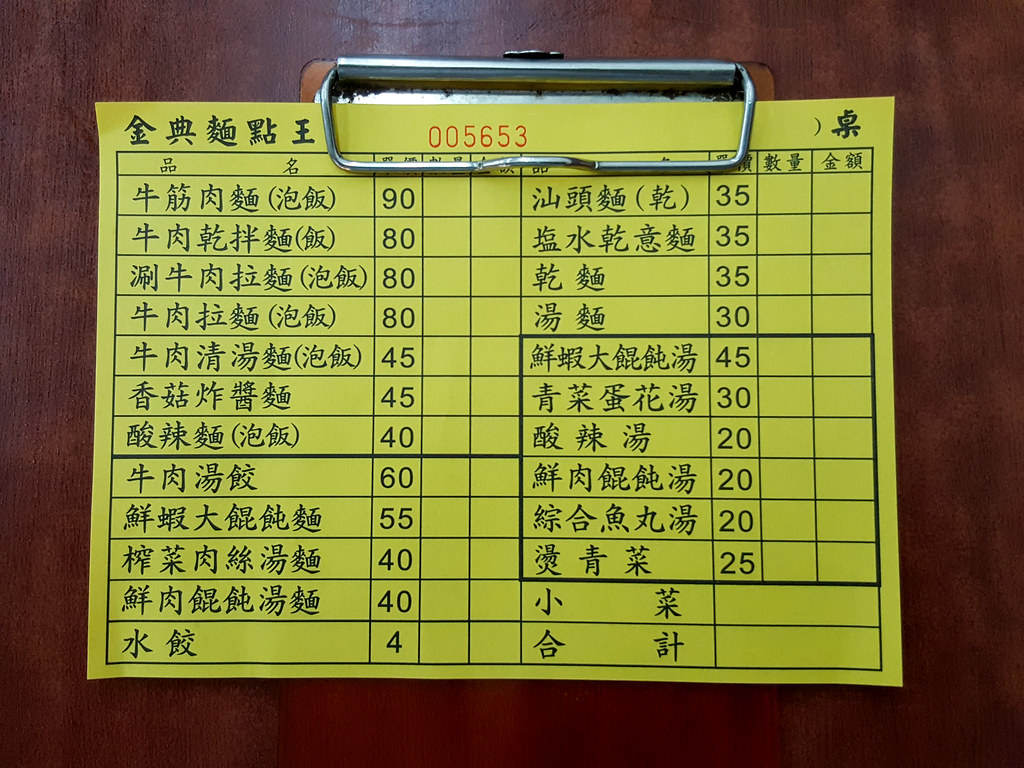 金典麵點王 005653 ）桌
品名 單價 數量 金額 品名 單價 數量 金額
牛筋肉麵(泡飯) 90 汕頭麵(乾) 35
牛肉乾拌麵(飯) 80 塩水乾意麵 35
涮牛肉拉麵(泡飯) 80 乾麵 35
牛肉拉麵(泡飯) 80 湯麵 30
牛肉清湯麵(泡飯) 45 鮮蝦大餛飩湯 45
香菇炸醬麵 45 青菜蛋花湯 30
酸辣麵(泡飯) 40 酸辣湯 20
牛肉湯餃 60 鮮肉餛飩湯 20
鮮蝦大餛飩麵 55 綜合魚丸湯 20
榨菜肉絲湯麵 40 燙青菜 25
鮮肉餛飩湯麵 40 小菜
水餃 4 合計